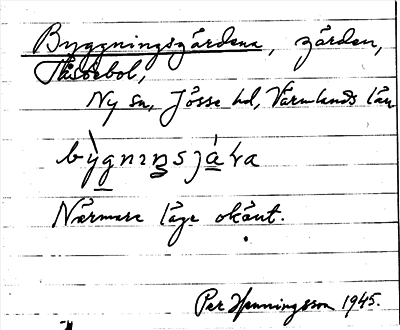 Byggningsgärdena, gärden,
Tåsebol,
Ny sn, Jösse hd, Värmlands län
bỳgnıŋsjà̠ɽa
Närmare läge okänt.
Per Henningsson 1945.